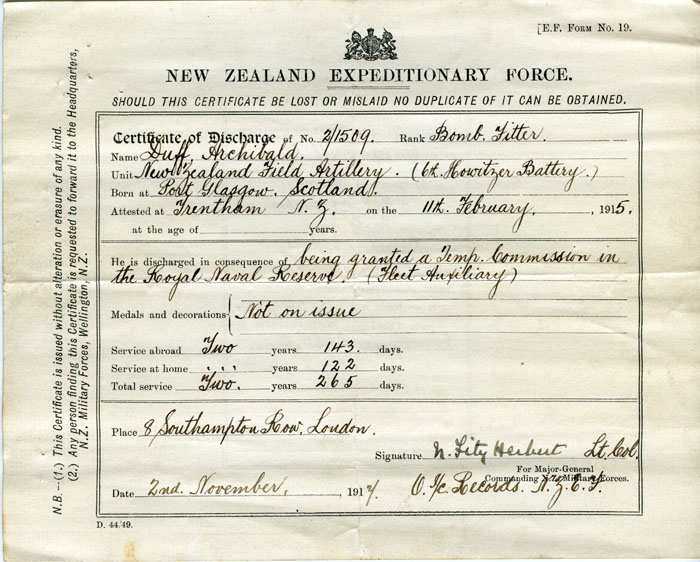 [E.F. FORM NO. 19.
NEW ZEALAND EXPEDITIONARY FORCE.
SHOULD THIS CERTIFICATE BE LOST OR MISLAID NO DUPLICATE OF IT CAN BE OBTAINED.
Certificate of Discharge of No. 2/1509. Rank Bomb. Fitter.
Name Duff, Archibald.
Unit New Zealand Field Artillery. (6th Howitzer Battery.)
Born at Port Glasgow. Scotland.
Attested at Trentham N.Z. on the 11th February, 1915.
at the age of years.
He is discharged in consequence of being granted a Temp. Commission in
the Royal Naval Reserve. (Fleet Auxiliary)
Medals and decorations Not on issue
Service abroad Two years 143 days.
Service at home " " " years 122 days.
Total service Two. years 265 days.
Place 8 Southampton Row, London.
Signature N. Fitz Herbert Lt. Col.
For Major-General
Commanding N.Z. Military Forces.
O. i/c. Records. N.Z.E.F.
Date 2nd. November, 1917.
D. 44/49.
N.B.—(1.) This Certificate is issued without alteration or erasure of any kind.
(2.) Any person finding this Certificate is requested to forward it to the Headquarters,
N.Z. Military Forces, Wellington, N.Z.